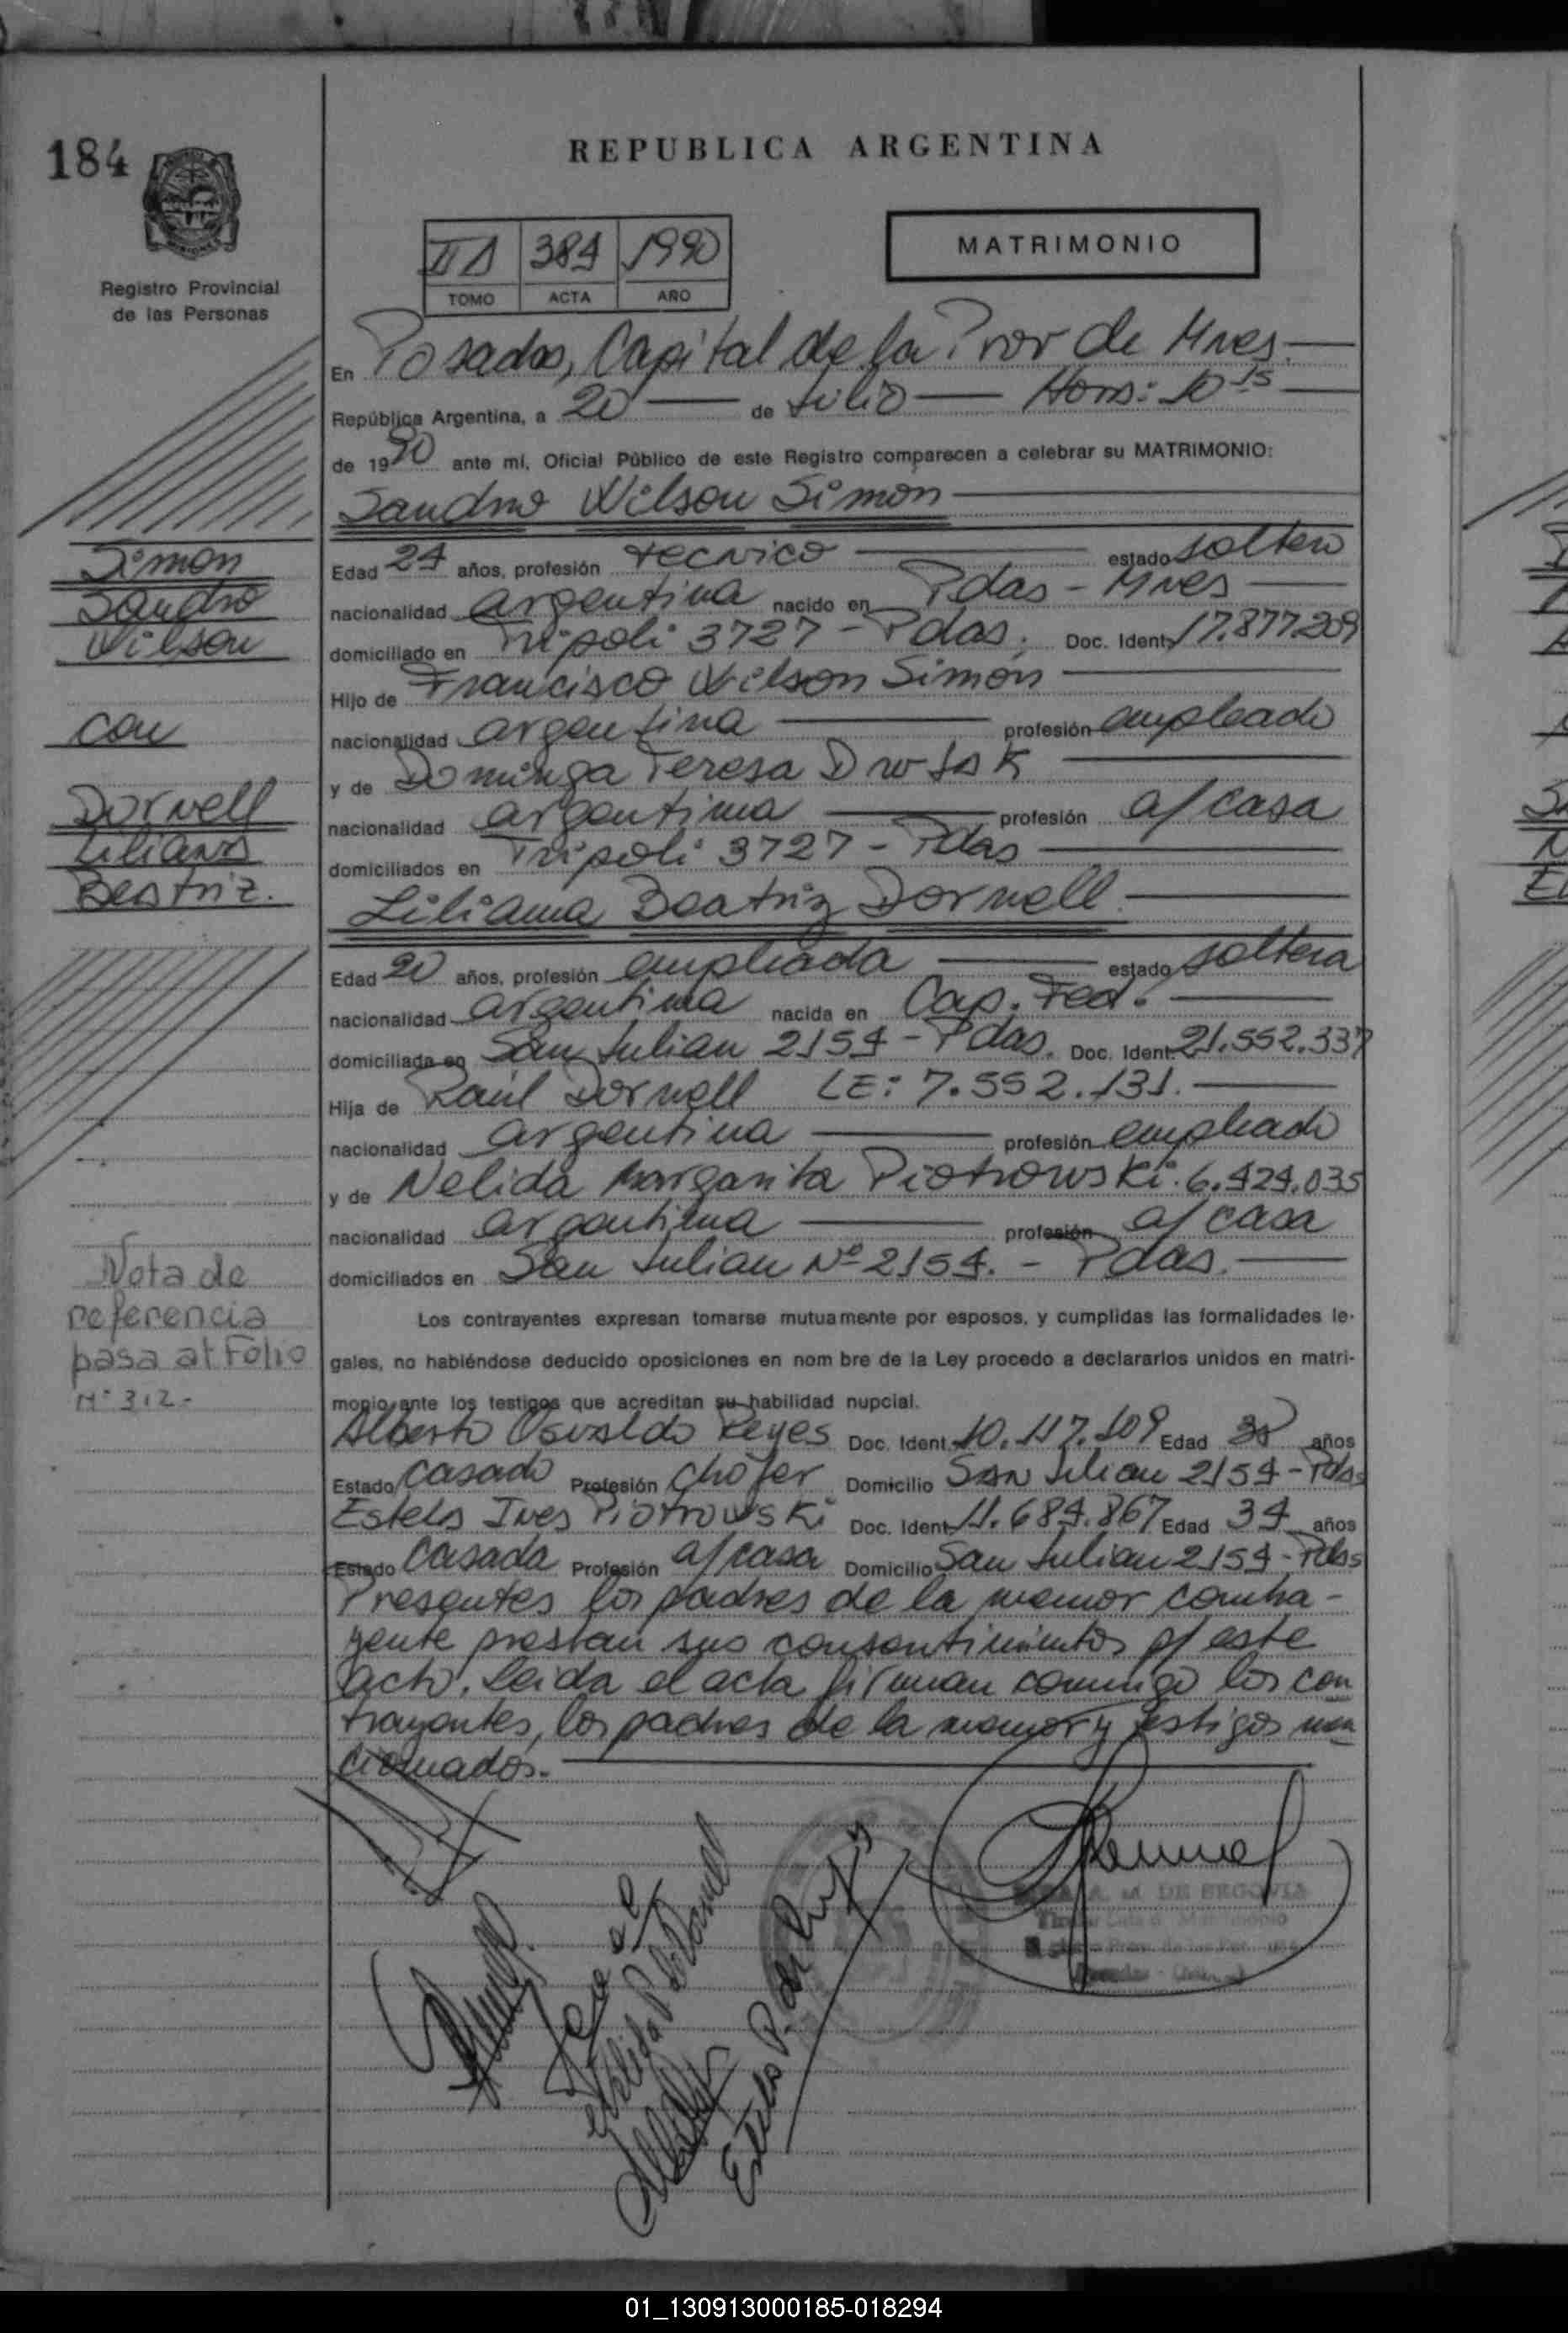 184
REPUBLICA ARGENTINA
MATRIMONIO
II A 384 1990
TOMO ACTA AÑO
Registro Provincial
de las Personas
En Posadas, Capital de la Prov de Mnes.
República Argentina, a 20 de Julio Hora: 10 15
de 1990 ante mí, Oficial Público de este Registro comparecen a celebrar su MATRIMONIO:
Sandro Wilson Simón
Simon
Sandro
Wilson
con
Dornell
Liliana
Beatriz.
Edad 24 años, profesión tecnico estado soltero
nacionalidad argentina nacido en Pdas - Mnes
domiciliado en Tripoli 3727 - Pdas. Doc. Ident. 17.877.209
Hijo de Francisco Wilson Simón
nacionalidad argentina profesión empleado
y de Dominga Teresa
nacionalidad argentina profesión a/casa
domiciliados en Tripoli 3727 - Pdas
Liliana Beatriz Dornell.
Edad 20 años, profesión empleada estado soltera
nacionalidad argentina nacida en Cap. Fed.
domiciliada en San Julian 2154 - Pdas. Doc. Ident. 21.552.337
Hija de Raúl Dornell LE: 7.552.131.
nacionalidad argentina profesión empleado
y de Nelida Margarita Piotrowski. 6.424.035
nacionalidad argentina profesión a/casa
domiciliados en San Julian Nº 2154. - Pdas.
Nota de
referencia
pasa al Folio
Nº 312-
Los contrayentes expresan tomarse mutuamente por esposos, y cumplidas las formalidades le-
gales, no habiéndose deducido oposiciones en nom bre de la Ley procedo a declararlos unidos en matri-
monio ante los testigos que acreditan su habilidad nupcial.
Alberto Osvaldo Reyes Doc. Ident. 10.117.109 Edad años
Estado Casado Profesión Chofer Domicilio San Julian 2154 - Pdas
Estela Ines Piotrowski Doc. Ident. 11.684.867 Edad 34 años
Estado Casada Profesión a/casa Domicilio San Julian 2154 - Pdas
Presentes los padres de la menor contra-
yente prestan sus consentimientos p/ este
acto. Leida el acta firman conmigo los con
trayentes, los padres de la menor y testigos men
cionados.
A. M DE SEGOVIA
01_130913000185-018294